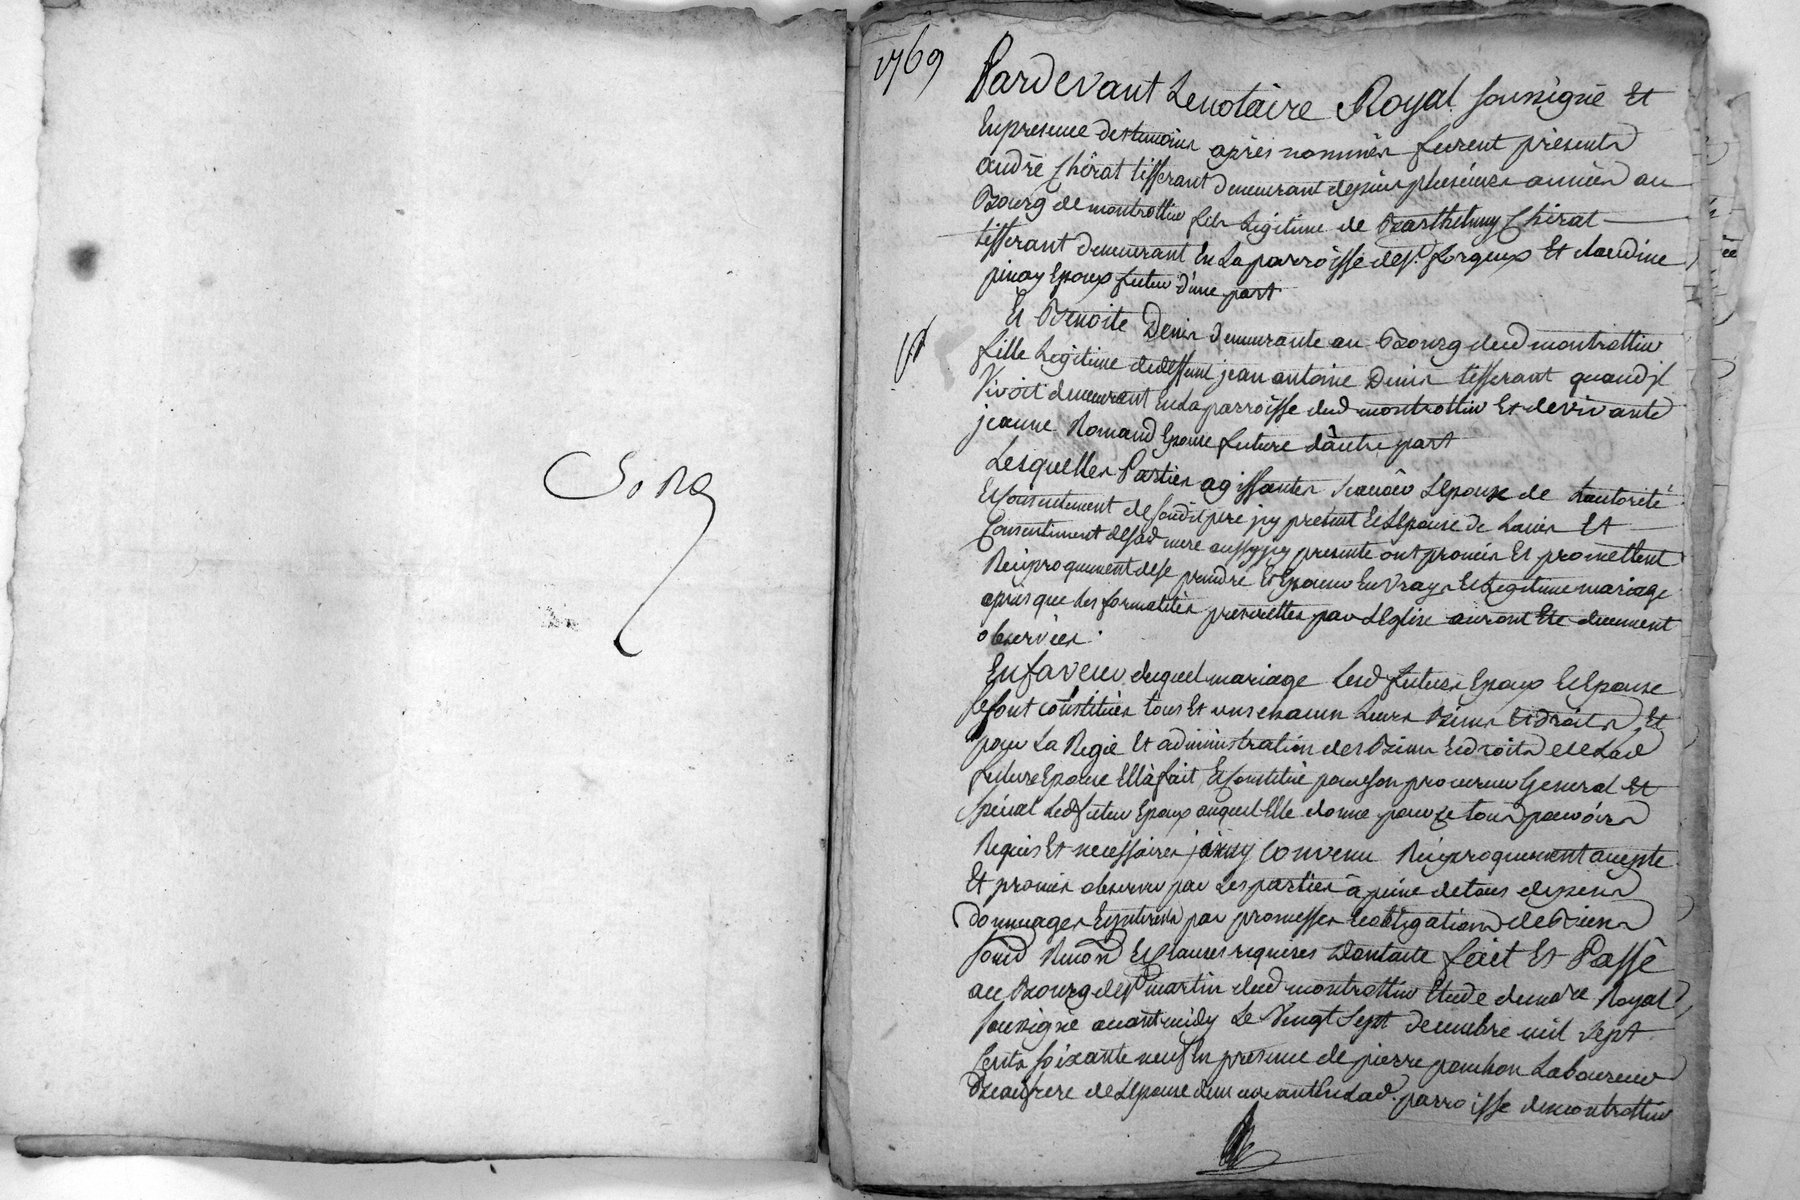 1769
Pardevant Le notaire Royal soussigné Et
En presence des temoins après nommés furent présents
andré Chirat tisserant demeurant depuis plusieurs années au
Bourg de montrottier fils Légitime de Barthelemy Chirat
tisserant demeurant En La parroisse de st forgeux Et claudine
pinay Epoux futur d'une part
Et Benoite Denis demeurante au Bourg dud montrottier
fille Legitime de deffunt jean antoine Denis tisserant quand il
Vivoit demeurant En La parroisse dud montrottier Et de vivante
jeanne Romand Epouse future d'autre part
Lesquelles Parties agissantes L'Epoux de L'autorité
Et Consentement de sondit pere icy présent Et L'Epouse de L'avis Et
Consentiment de sad mere aussy icy presente ont promis Et promettent
Reciproquement de se prendre Et Epouser En vray Et Legitime mariage
apres que les formalités prescrittes par L'Eglise auront Eté duement
observées.
En faveur duquel mariage Lesd futurs Epoux Et Epouse
se sont constitués tous Et uns chacun Leurs Biens Et droits Et
pour La Regie Et administration des Biens Et droits de Lad
future Epouse Ella fait Et Constitué pour son procureur General Et
spécial Led futur Epoux auquel Elle donne pour ce tous pouvoirs
Requis Et necessaires convenu Reciproquement accepté
Et promis observer par Les parties à peine de tous depens
dommages Et interets par promesses Et obligations de Biens
soud Renon Et Clauses requises Dont acte fait Et Passé
au Bourg de st martin dud montrottier Etude du nore Royal
soussigné avant midy Le Vingt Sept decembre mil sept
Cents soixante neuf En presence de pierre ponchon Laboureur
Beaufrere de L'Epouse demeurant En Lad. parroisse de montrottier